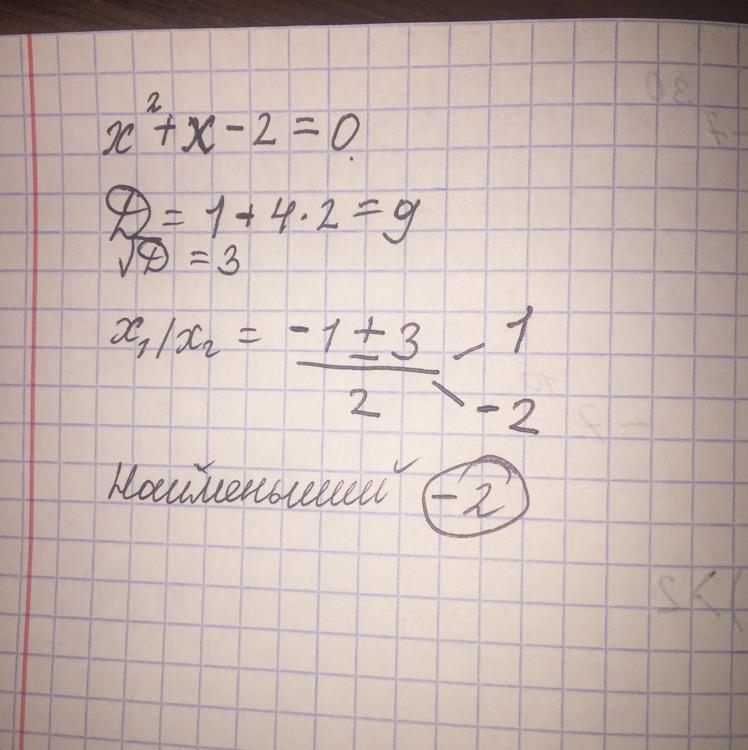 x² + x - 2 = 0
D = 1 + 4 · 2 = 9
√D = 3
x₁/x₂ = (-1 ± 3)/2 1
-2
Наименьший -2